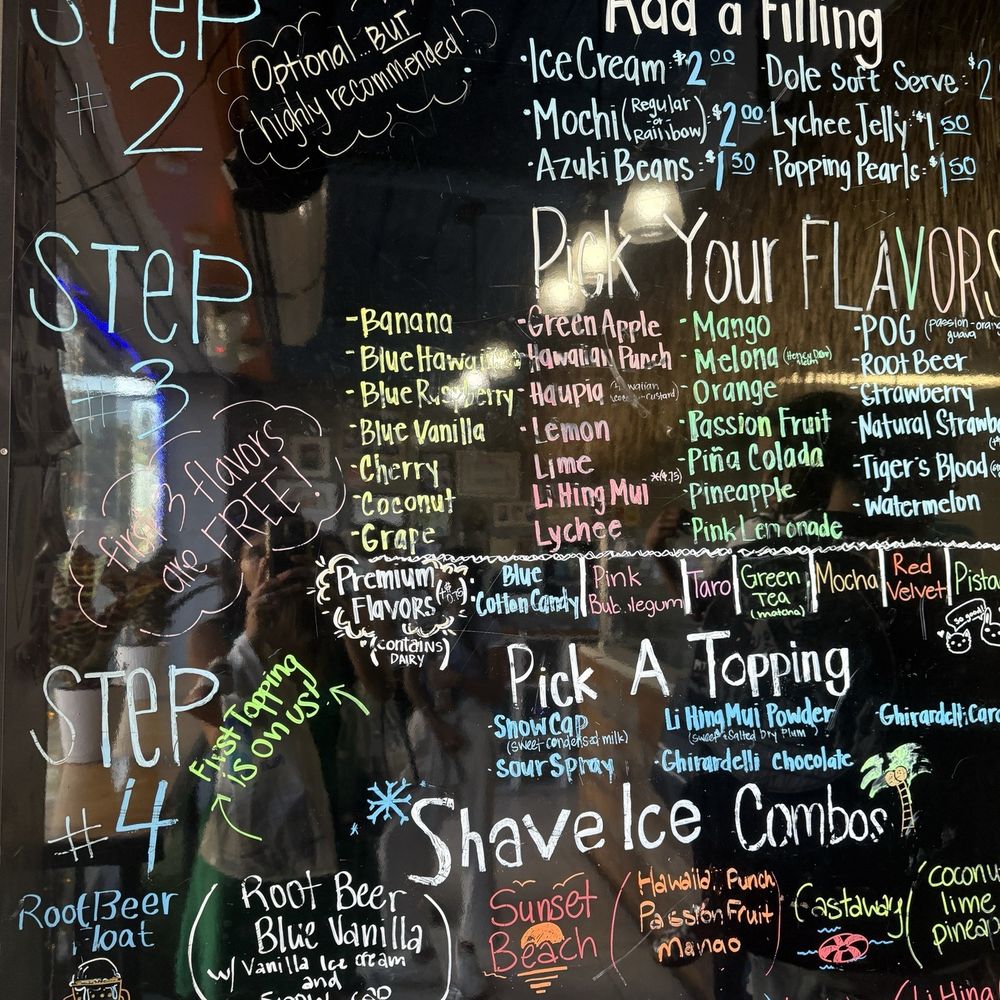 STEP
# 2
Optional.. BUT
highly recommended!
Add a Filling
·Ice Cream $2.00
·Mochi (Regular -or- Rainbow) $2.00
·Azuki Beans: $1.50
·Dole Soft Serve: $2
·Lychee Jelly: $1.50
·Popping Pearls: $1.50
STEP
#3
first 3 flavors
are FREE!
Pick Your FLAVORS
-Banana
-Blue Hawaiian
-Blue Raspberry
-Blue Vanilla
-Cherry
-Coconut
-Grape
-Green Apple
-Hawaiian Punch
-Haupia
-Lemon
Lime
Li Hing Mui
Lychee
-Mango
-Melona
-Orange
-Passion Fruit
-Piña Colada
-Pineapple
-Pink Lemonade
-POG (passion-orang
guava
-Root Beer
-Strawberry
-Natural Strawb
-Tiger's Blood
-Watermelon
Premium
Flavors
(contains
DAIRY)
·Blue
Cotton Candy
Pink
Bubblegum
Taro
Green
Tea
(matcha)
Mocha
Red
Velvet
Pista
so good!
STEP
#4
First Topping
is on us!
Pick A Topping
·Snow Cap
(sweet condensed milk)
·Sour Spray
Li Hing Mui Powder
(sweet & salted Dry Plum)
·Ghirardelli Chocolate
·Ghirardelli Car
Shave Ice Combos
Root Beer
Float
Root Beer
Blue Vanilla
w/ Vanilla Ice cream
and
Snow cap
Sunset
Beach
Hawaiian Punch
Passion Fruit
Mango
Castaway
coconu
lime
pineap
Li Hing